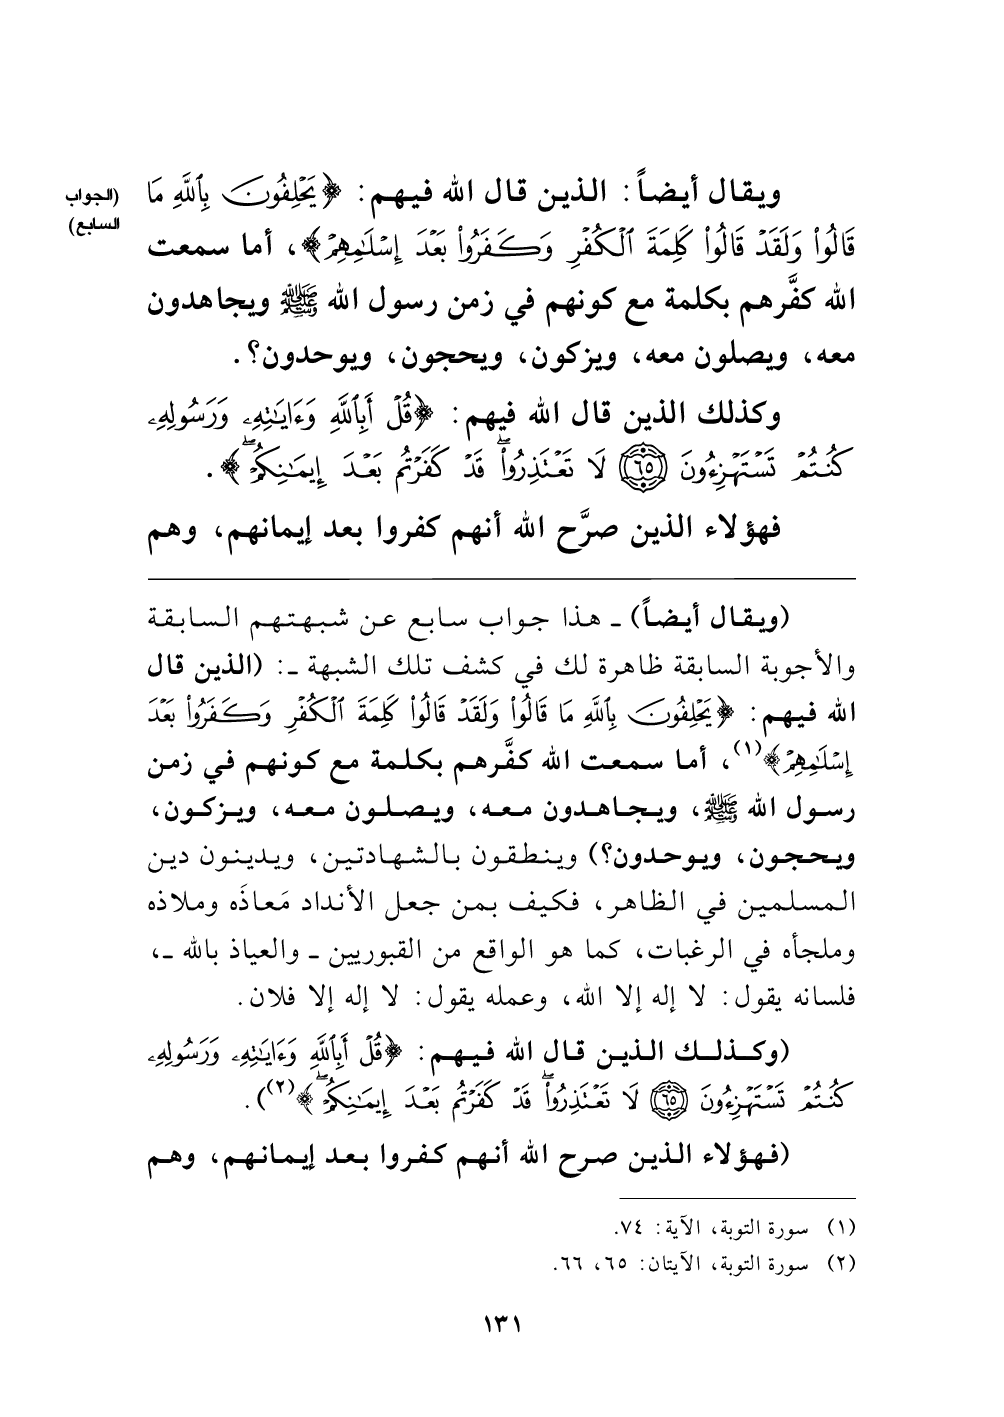 ويقال أيضاً: الذين قال الله فيهم: ﴿يَحْلِفُونَ بِٱللَّهِ مَا
(الجواب
السابع)
قَالُوا۟ وَلَقَدْ قَالُوا۟ كَلِمَةَ ٱلْكُفْرِ وَكَفَرُوا۟ بَعْدَ إِسْلَٰمِهِمْ﴾، أما سمعت
الله كفَّرهم بكلمة مع كونهم في زمن رسول الله ﷺ ويجاهدون
معه، ويصلون معه، ويزكون، ويحجون، ويوحدون؟.
وكذلك الذين قال الله فيهم: ﴿قُلْ أَبِٱللَّهِ وَءَايَٰتِهِۦ وَرَسُولِهِۦ
كُنتُمْ تَسْتَهْزِءُونَ ۝٦٥ لَا تَعْتَذِرُوا۟ۖ قَدْ كَفَرْتُم بَعْدَ إِيمَٰنِكُمْۖ﴾.
فهؤلاء الذين صرَّح الله أنهم كفروا بعد إيمانهم، وهم
(ويقال أيضاً) ـ هذا جواب سابع عن شبهتهم السابقة
والأجوبة السابقة ظاهرة لك في كشف تلك الشبهة ـ: (الذين قال
الله فيهم: ﴿يَحْلِفُونَ بِٱللَّهِ مَا قَالُوا۟ وَلَقَدْ قَالُوا۟ كَلِمَةَ ٱلْكُفْرِ وَكَفَرُوا۟ بَعْدَ
إِسْلَٰمِهِمْ﴾(١)، أما سمعت الله كفَّرهم بكلمة مع كونهم في زمن
رسول الله ﷺ، ويجاهدون معه، ويصلون معه، ويزكون،
ويحجون، ويوحدون؟) وينطقون بالشهادتين، ويدينون دين
المسلمين في الظاهر، فكيف بمن جعل الأنداد مَعاذَه وملاذه
وملجأه في الرغبات، كما هو الواقع من القبوريين ـ والعياذ بالله ـ،
فلسانه يقول: لا إله إلا الله، وعمله يقول: لا إله إلا فلان.
(وكذلك الذين قال الله فيهم: ﴿قُلْ أَبِٱللَّهِ وَءَايَٰتِهِۦ وَرَسُولِهِۦ
كُنتُمْ تَسْتَهْزِءُونَ ۝٦٥ لَا تَعْتَذِرُوا۟ۖ قَدْ كَفَرْتُم بَعْدَ إِيمَٰنِكُمْۖ﴾(٢)).
(فهؤلاء الذين صرح الله أنهم كفروا بعد إيمانهم، وهم
(١) سورة التوبة، الآية: ٧٤.
(٢) سورة التوبة، الآيتان: ٦٥، ٦٦.
١٣١